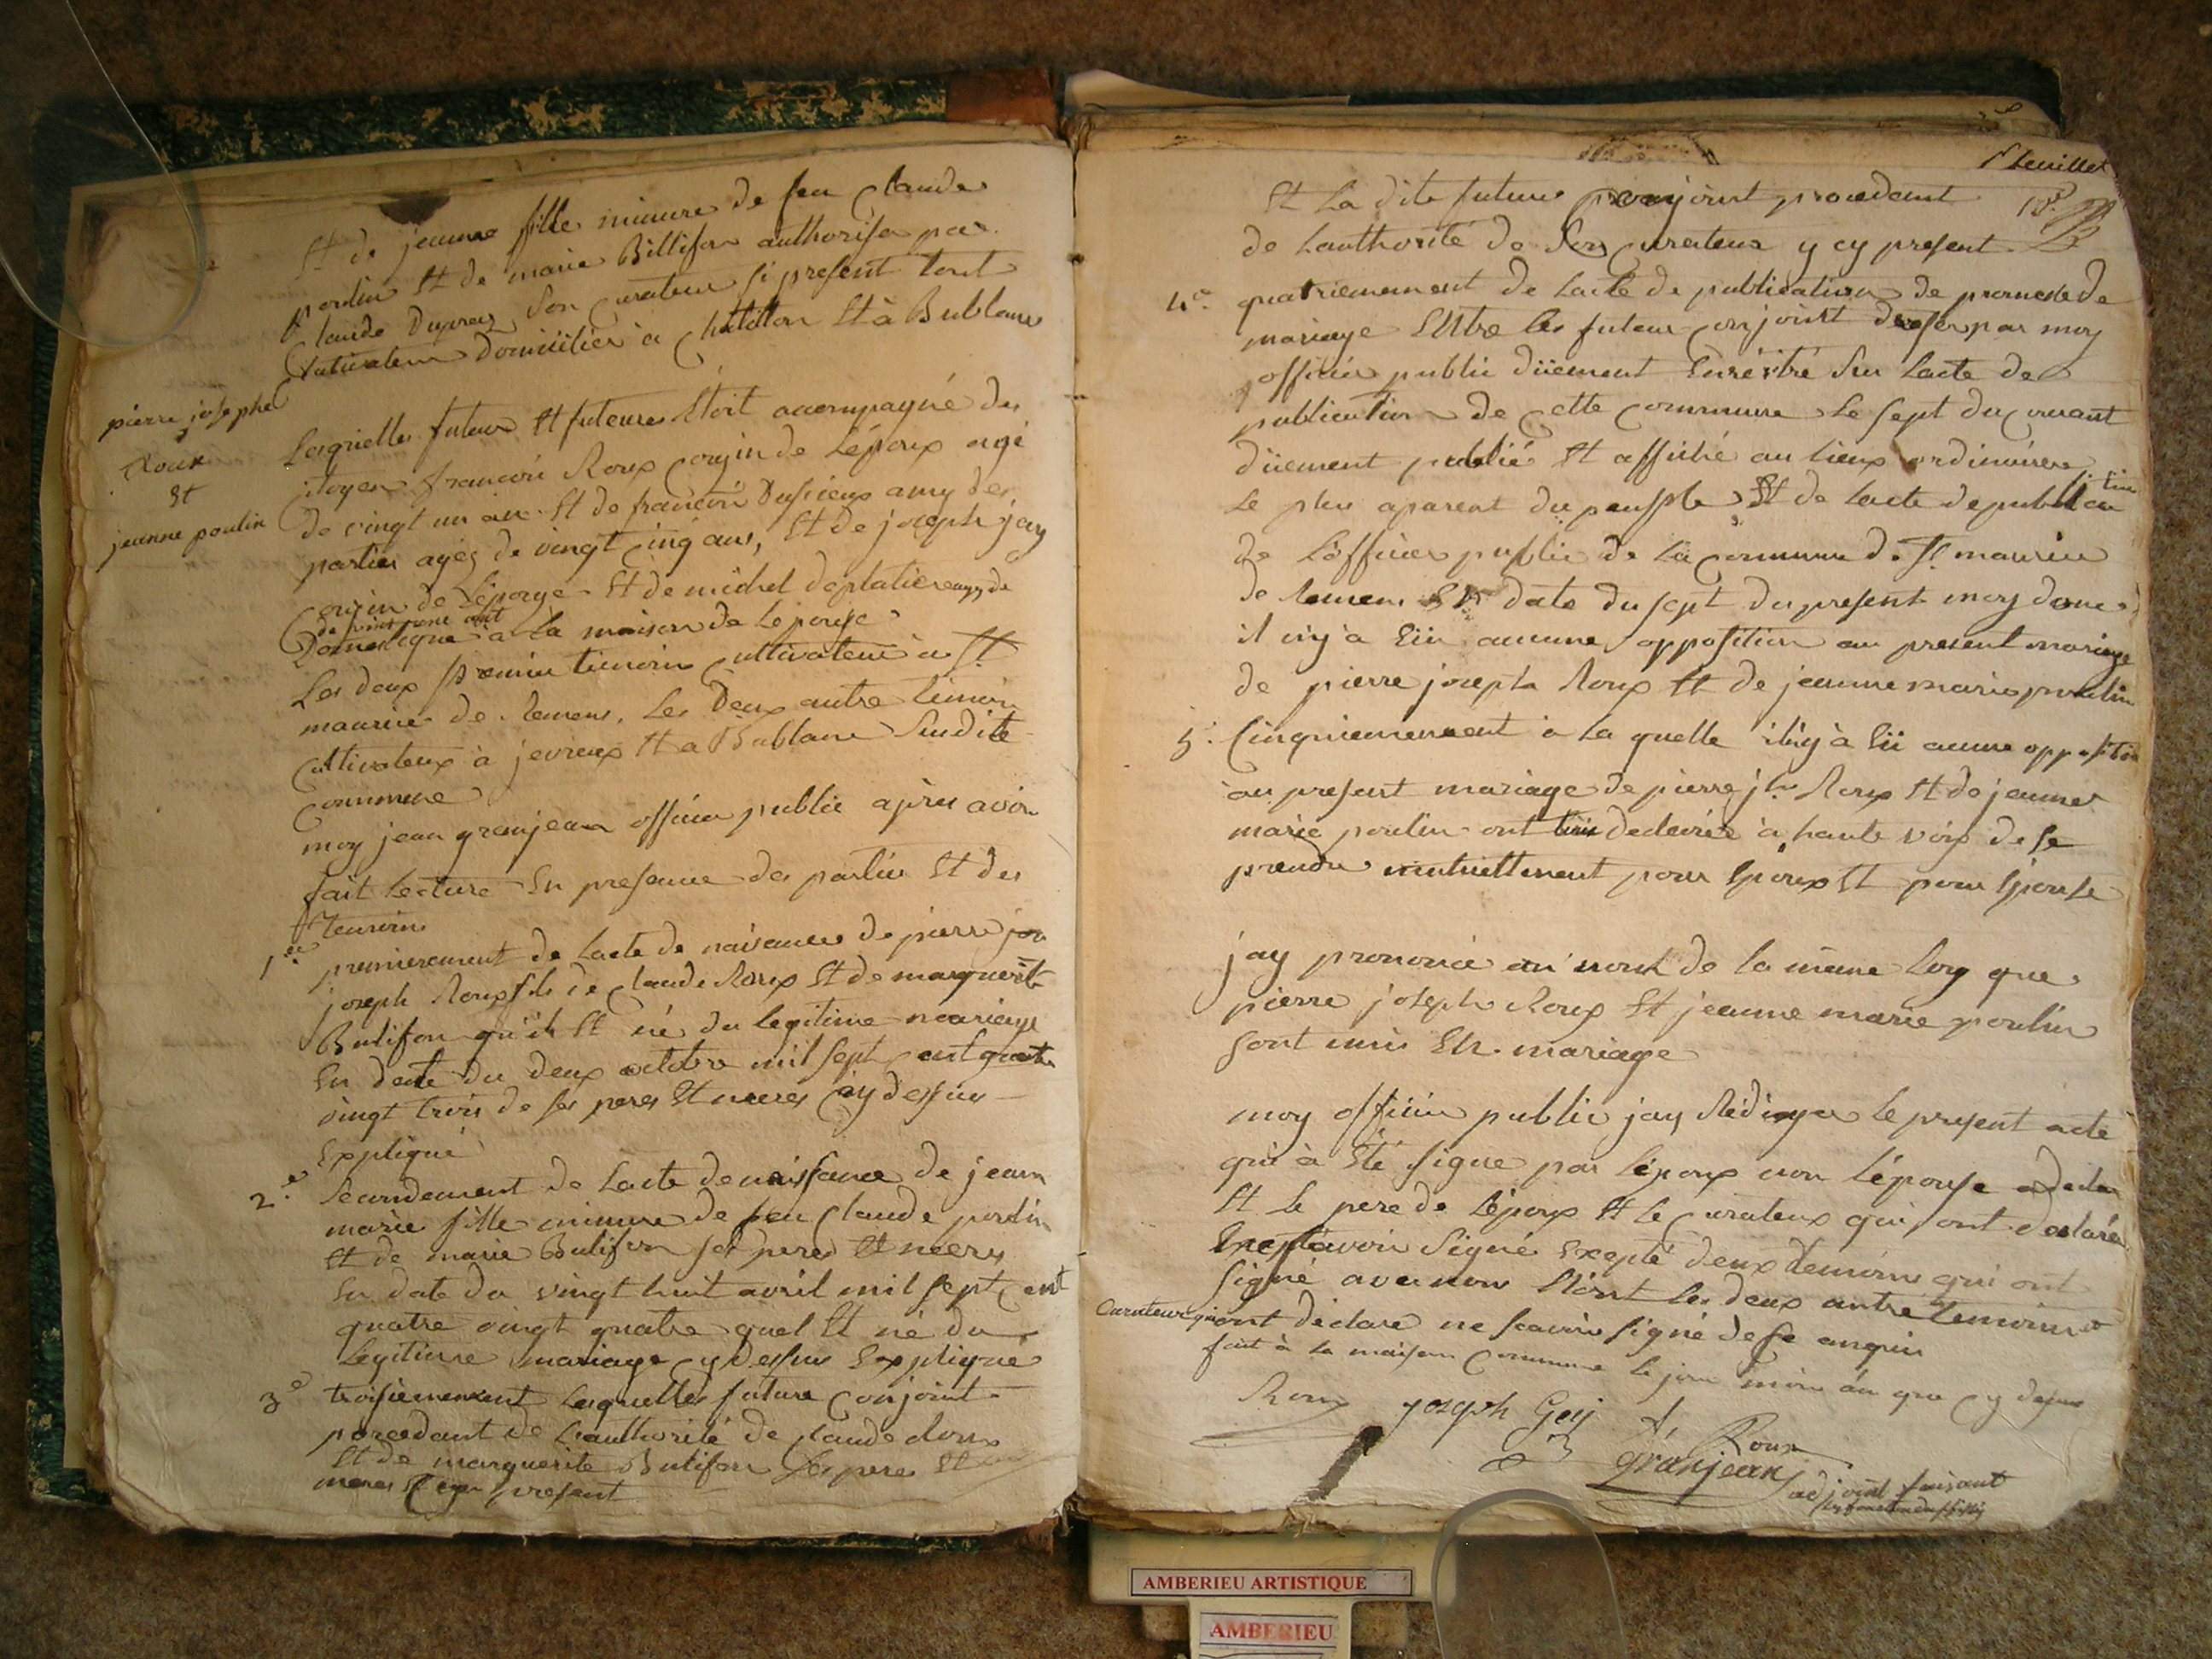 Et de jeanne fille mineure de feu Claude
poulin Et de marie Billifon authorisée par
Claude Duprez son Curateur si present tout
Cultivateur domicilier à Chatillon Et à Bublanne
pierre joseph
Roux
Et
jeanne poulin
Lesquelles futeur Et futeure Etoit accompagné des
citoyen francois Roux Cousin de Lépoux agé
de vingt un an Et de francois Dupieux amy des
parties agés de vingt Cinq ans, Et de joseph jay
Cousin de Lépouse Et de michel deplatiere agé de
de vint une ant
Domestique à la maison de Lepouse
Les deux premier temoins Cultivateur à St
maurice de Remens, Les Deux autre temoin
Cultivateur à jevrieux Et a Bublane Sudite
Commune
moy jean granjean officier public après avoir
fait Lecture En presence des parties Et des
Temoins
1er premierement de Lacte de naisance de pierre
joseph Roux fils de Claude Roux Et de marguerite
Bulifon qu'il Et né du legitime mariage
En date du deux octobre mil sept cent quatre
vingt trois de ses peres Et meres Cy dessus
Expliqué
2.e Secondement de Lacte de naissance de jeanne
marie fille mineure de feu Claude poulin
Et de marie Bulifon ses peres Et meres
En date du vingt huit avril mil sept Cent
quatre vingt quatre quel Et né du
Legitime mariage Cy dessus Expliqué
3e troisiemement Lesquelles future Conjoint
procedant de L'authorité de Claude Roux
Et de marguerite Bulifon Ses peres Et
meres present
feuillet
10e
Et La dite future Conjoint procedant
de Lauthorité de Son Curateur y cy present
4e quatriemement de Lacte de publication de promesse de
mariage Entre les futeur Conjoint dresser par moy
officier public düement Enréitré Sur Lacte de
publication de Cette Commune Le Sept du Courant
düement publié Et affiché au lieux ordinaire
Le plus aparent du peuple Et de Lacte de publication
de L'officier public de La Commune de St maurice
de Remens En date du sept du present moy donc
il n'y à Eüe aucune opposition au present mariage
de pierre joseph Roux Et de jeanne marie poulin
5. Cinquiemement à La quelle il n'y à Eü aucune opposition
au present mariage de pierre jh Roux Et de jeanne
marie poulin ont declarée à haute voix de Se
prendre mutuellement pour Epoux Et pour Epouse
jay prononcé au nont de la même Loy que
pierre joseph Roux Et jeanne marie poulin
Sont unis En mariage
moy officier public jay Rédiger le present acte
qui à Eté signe par Lépoux non Lépouse
Et le pere de Lépoux Et le Curateur qui ont déclaré
Signé Excepté deux temoins qui ont
Signé avec nous les deux autre temoins
Curateur qui ont déclaré ne scavoir signé de ce enquis
fait à la maison Commune le jour mois an que Cy dessus
Roux joseph Gey
Roux
granjean
adjoint faisant
AMBERIEU ARTISTIQUE
AMBERIEU